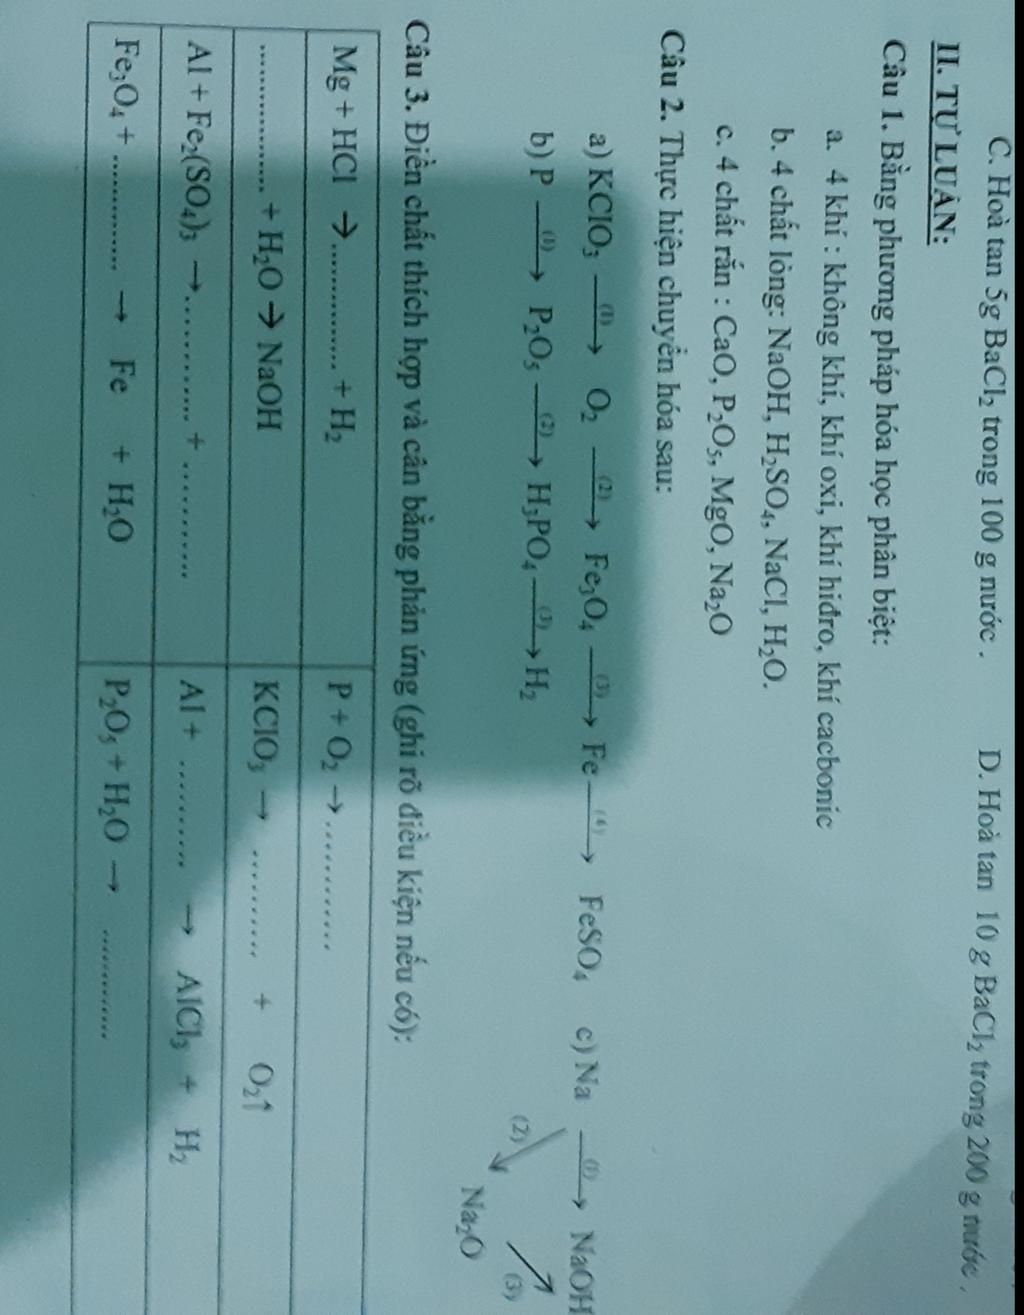 C. Hoà tan 5g BaCl₂ trong 100 g nước . D. Hoà tan 10 g BaCl₂ trong 200 g nước .
II. TỰ LUẬN:
Câu 1. Bằng phương pháp hóa học phân biệt:
a. 4 khí : không khí, khí oxi, khí hiđro, khí cacbonic
b. 4 chất lỏng: NaOH, H₂SO₄, NaCl, H₂O.
c. 4 chất rắn : CaO, P₂O₅, MgO, Na₂O
Câu 2. Thực hiện chuyển hóa sau:
a) KClO₃ —(1)→ O₂ —(2)→ Fe₃O₄ —(3)→ Fe —(4)→ FeSO₄ c) Na —(1)→ NaOH
b) P —(1)→ P₂O₅ —(2)→ H₃PO₄ —(3)→ H₂ (2) ↘ ↗ (3)
Na₂O
Câu 3. Điền chất thích hợp và cân bằng phản ứng (ghi rõ điều kiện nếu có):
Mg + HCl → ............ + H₂ P + O₂ → ............
............... + H₂O → NaOH KClO₃ → .......... + O₂↑
Al + Fe₂(SO₄)₃ → ............ + .......... Al + .......... → AlCl₃ + H₂
Fe₃O₄ + ............ → Fe + H₂O P₂O₅ + H₂O → ............